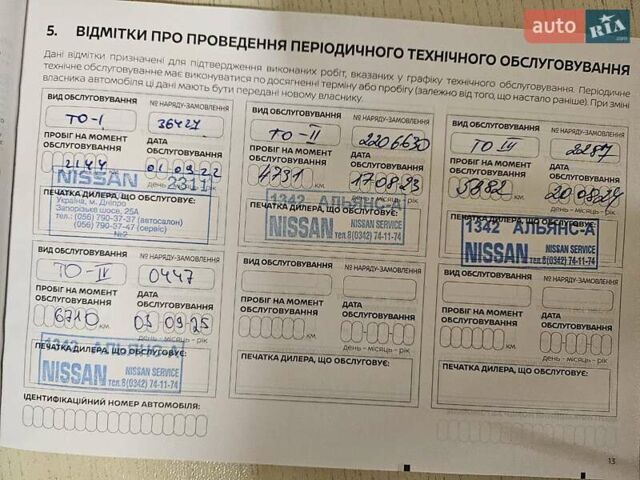 auto RIA.com
5. ВІДМІТКИ ПРО ПРОВЕДЕННЯ ПЕРІОДИЧНОГО ТЕХНІЧНОГО ОБСЛУГОВУВАННЯ
Дані відмітки призначені для підтвердження виконаних робіт, вказаних у графіку технічного обслуговування. Періодичне
технічне обслуговування має виконуватися по досягненні терміну або пробігу (залежно від того, що настало раніше). При зміні
власника автомобіля ці дані мають бути передані новому власнику.
ВИД ОБСЛУГОВУВАННЯ № НАРЯДУ-ЗАМОВЛЕННЯ
ТО-I 36427
ПРОБІГ НА МОМЕНТ ОБСЛУГОВУВАННЯ
2144
ДАТА ОБСЛУГОВУВАННЯ
01 09 22
день – місяць – рік
ПЕЧАТКА ДИЛЕРА, ЩО ОБСЛУГОВУЄ:
NISSAN 2311
Україна, м. Дніпро
Запорізьке шосе, 25А
тел.: (056) 790-37-37 (автосалон)
(056) 790-37-47 (сервіс)
№2
ВИД ОБСЛУГОВУВАННЯ № НАРЯДУ-ЗАМОВЛЕННЯ
ТО-II 2206630
ПРОБІГ НА МОМЕНТ ОБСЛУГОВУВАННЯ
4731 км
ДАТА ОБСЛУГОВУВАННЯ
17 08 23
день – місяць – рік
ПЕЧАТКА ДИЛЕРА, ЩО ОБСЛУГОВУЄ:
1342 АЛЬЯНС-А
NISSAN NISSAN SERVICE
тел.8(0342) 74-11-74
ВИД ОБСЛУГОВУВАННЯ № НАРЯДУ-ЗАМОВЛЕННЯ
2287
ПРОБІГ НА МОМЕНТ ОБСЛУГОВУВАННЯ
5882 км
ДАТА ОБСЛУГОВУВАННЯ
20 08 24
день – місяць – рік
ПЕЧАТКА ДИЛЕРА, ЩО ОБСЛУГОВУЄ:
1342 АЛЬЯНС-А
NISSAN NISSAN SERVICE
тел.8(0342) 74-11-74
ВИД ОБСЛУГОВУВАННЯ № НАРЯДУ-ЗАМОВЛЕННЯ
ТО-IV 0447
ПРОБІГ НА МОМЕНТ ОБСЛУГОВУВАННЯ
6710 км
ДАТА ОБСЛУГОВУВАННЯ
03 09 25
день – місяць – рік
ПЕЧАТКА ДИЛЕРА, ЩО ОБСЛУГОВУЄ:
1342 АЛЬЯНС-А
NISSAN NISSAN SERVICE
тел.8(0342) 74-11-74
ВИД ОБСЛУГОВУВАННЯ № НАРЯДУ-ЗАМОВЛЕННЯ
ПРОБІГ НА МОМЕНТ ОБСЛУГОВУВАННЯ
км
ДАТА ОБСЛУГОВУВАННЯ
день – місяць – рік
ПЕЧАТКА ДИЛЕРА, ЩО ОБСЛУГОВУЄ:
ВИД ОБСЛУГОВУВАННЯ № НАРЯДУ-ЗАМОВЛЕННЯ
ПРОБІГ НА МОМЕНТ ОБСЛУГОВУВАННЯ
км
ДАТА ОБСЛУГОВУВАННЯ
день – місяць – рік
ПЕЧАТКА ДИЛЕРА, ЩО ОБСЛУГОВУЄ:
ІДЕНТИФІКАЦІЙНИЙ НОМЕР АВТОМОБІЛЯ:
13